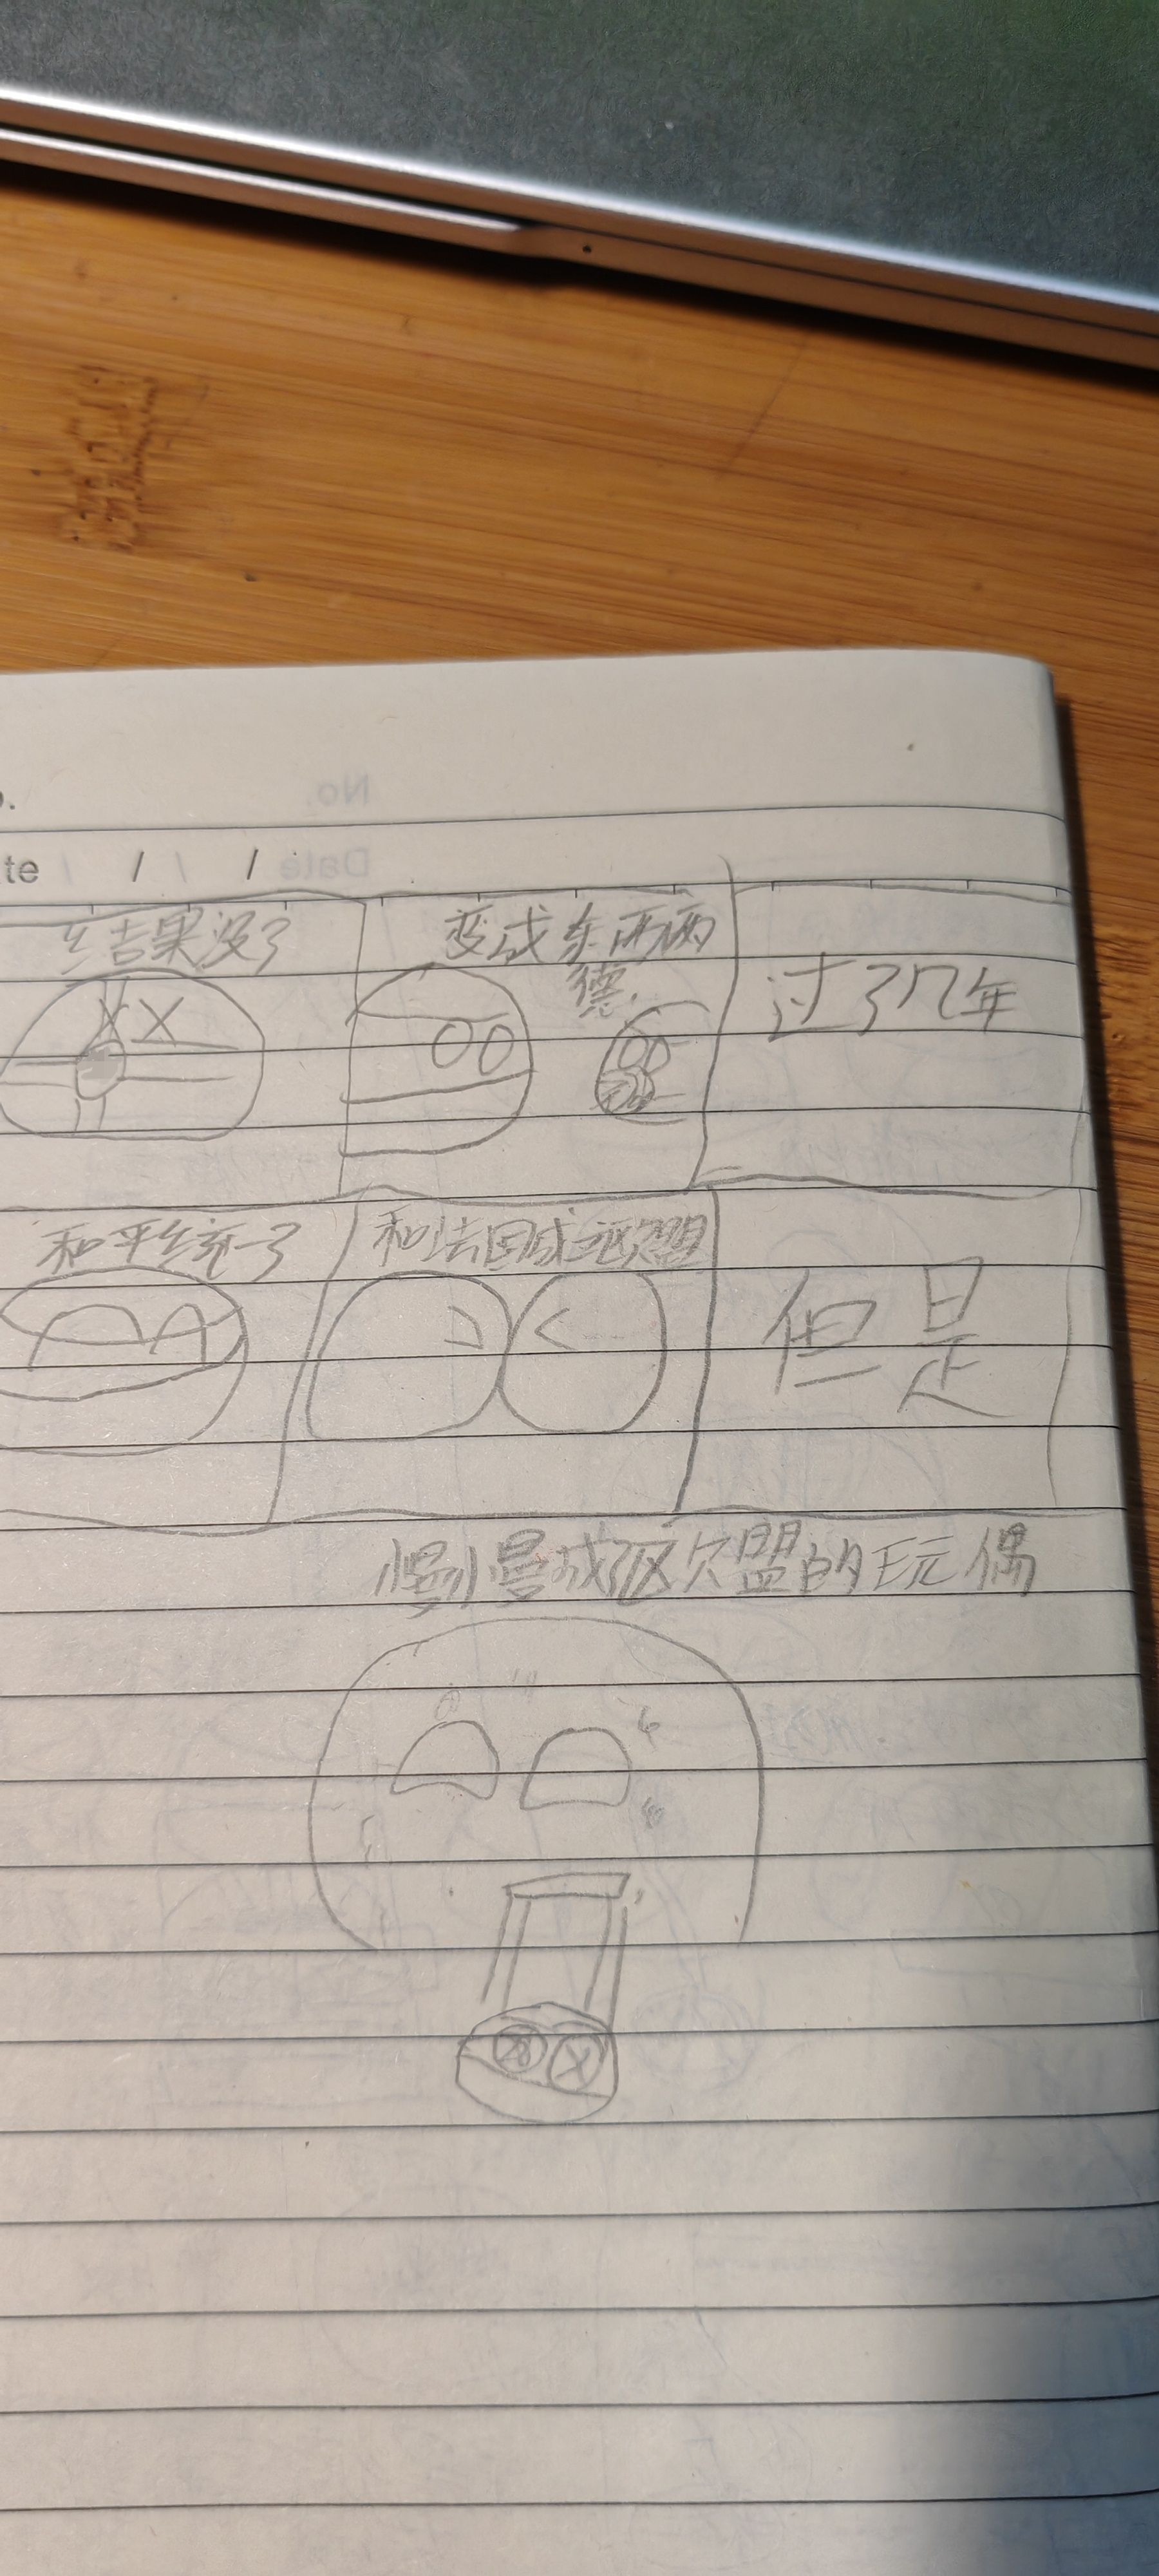 No.
Date
te / / /
结果没了
变成东西两
德.
过了几年
和平统一了
和法国成立欧盟
但是
慢慢成欧盟的玩偶